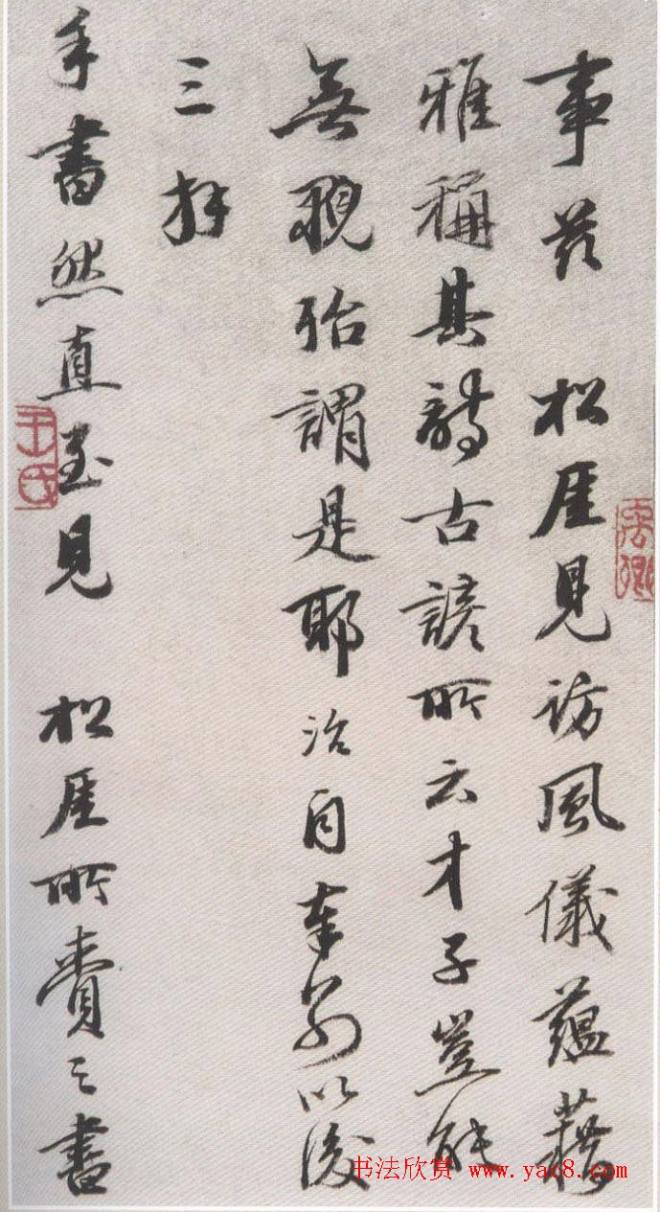 事茲 松厓見訪風儀蘊藉
雅稱其詩古諺所云才子豈能
無貌殆謂是耶治自奉別以後
三拜
手書然直至見 松厓所賫之書
禹卿
王氏
书法欣赏 www.yac8.com